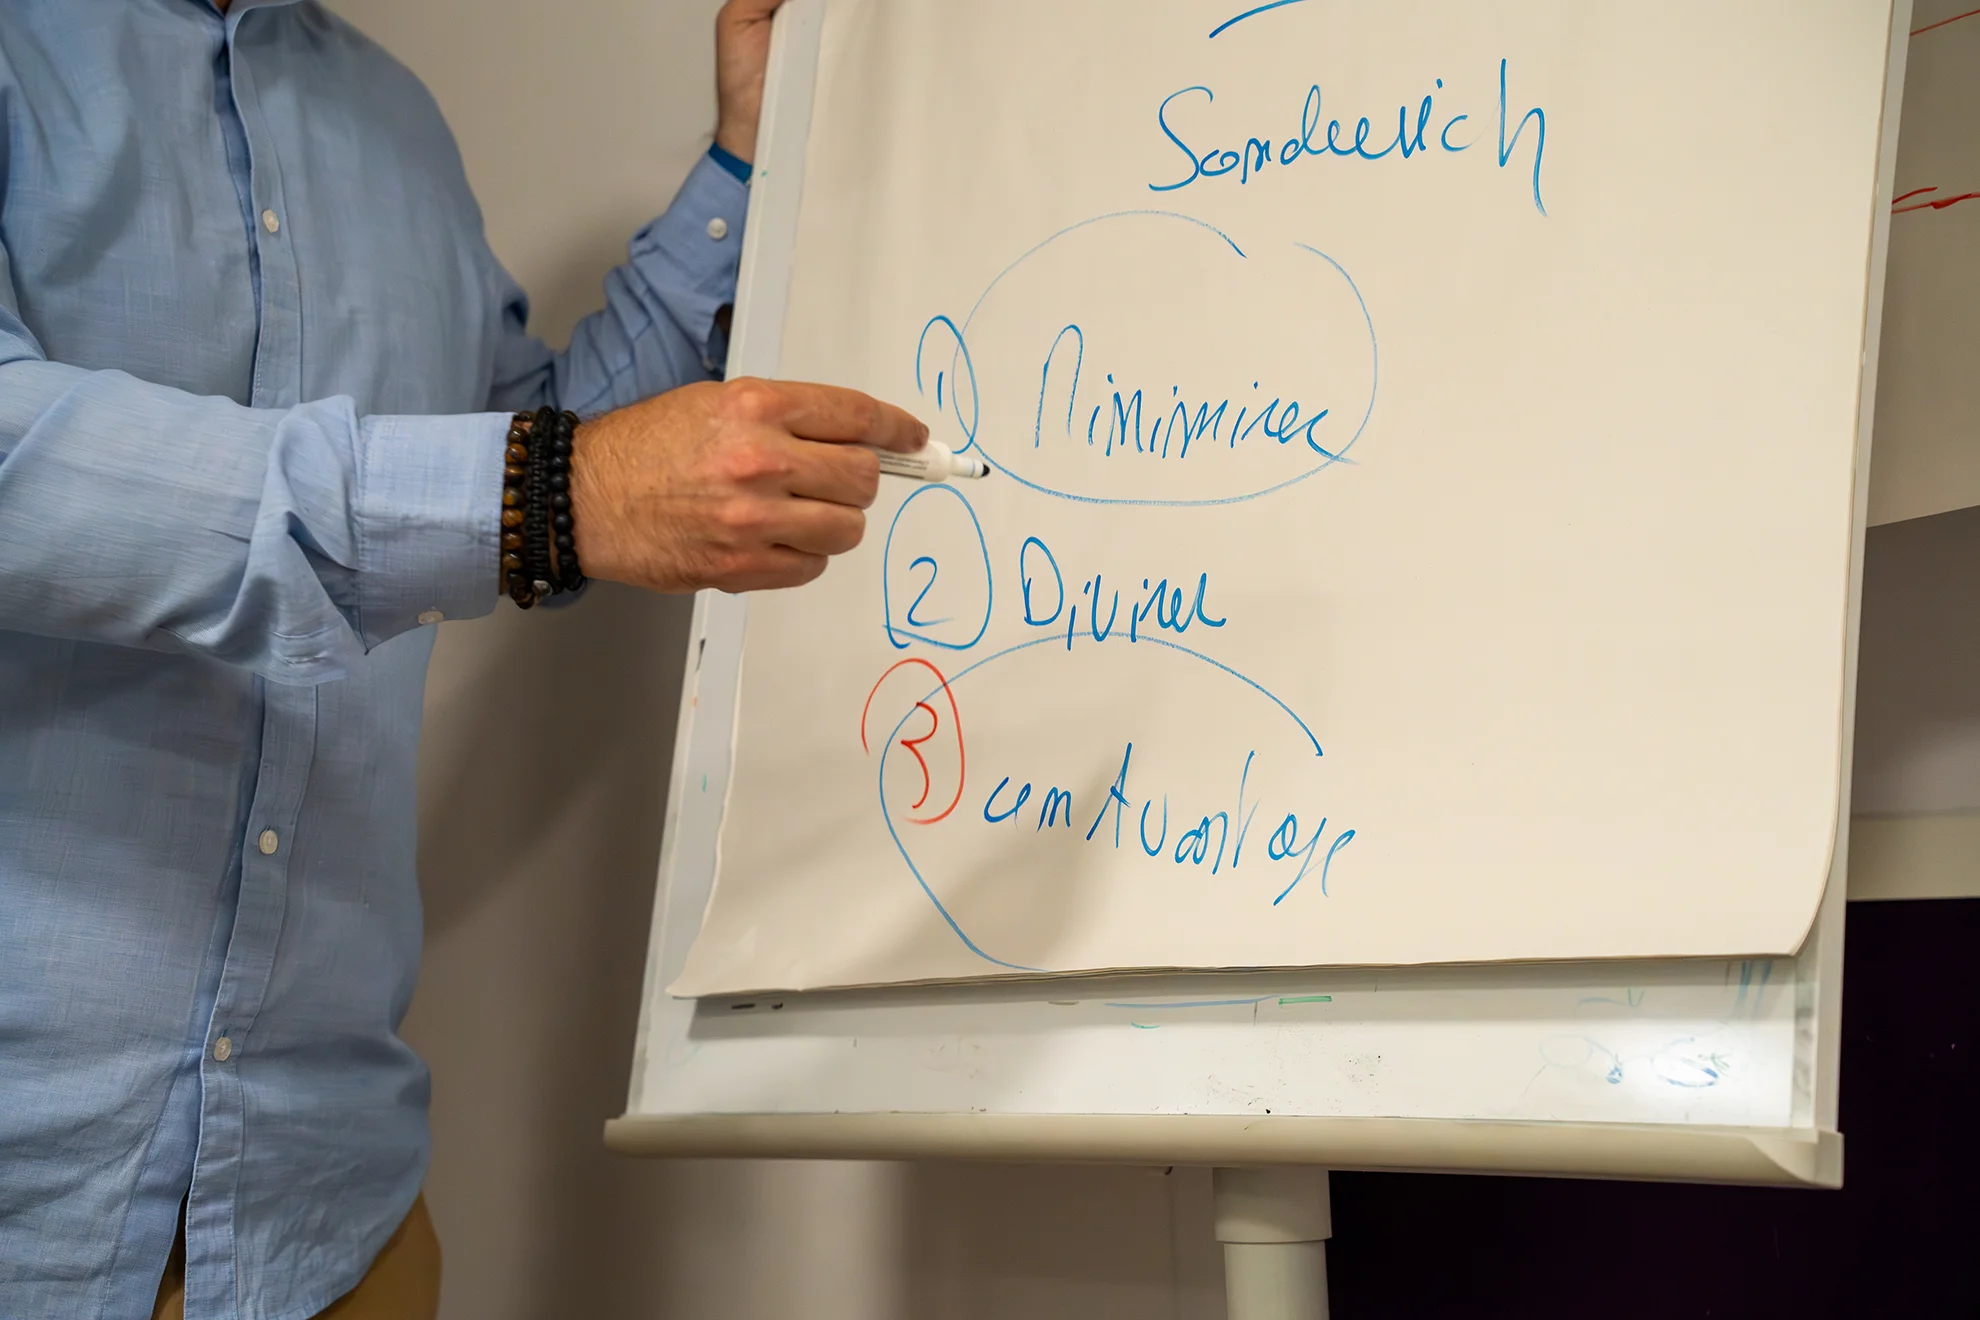 Sandwich
1 Minimiser
2 Diviser
3 Avantage